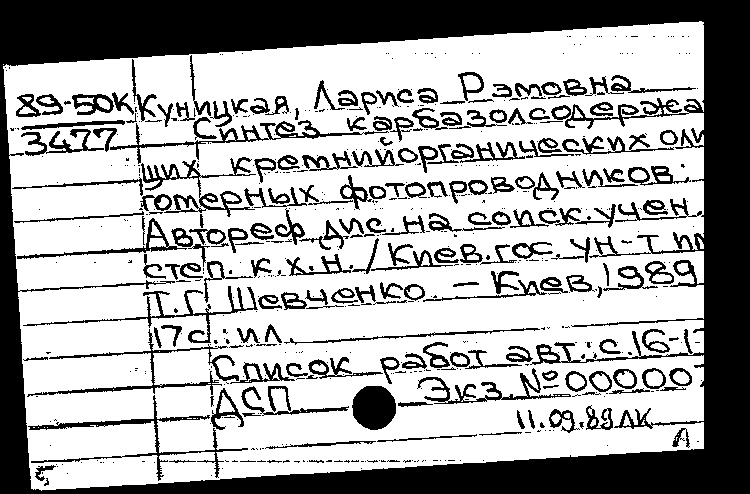 89-50К Куницкая, Лариса Рэмовна.
3477 Синтез карбазолсодержа
щих кремнийорганических оли
гомерных фотопроводников:
Автореф. дис. на соиск. учен.
степ. к.х.н. / Киев. гос. ун-т им
Т.Г. Шевченко. – Киев, 1989
17с.: ил.
Список работ авт.: с.16-17
ДСП. Экз. № 000007
11.09.89 ЛК
А